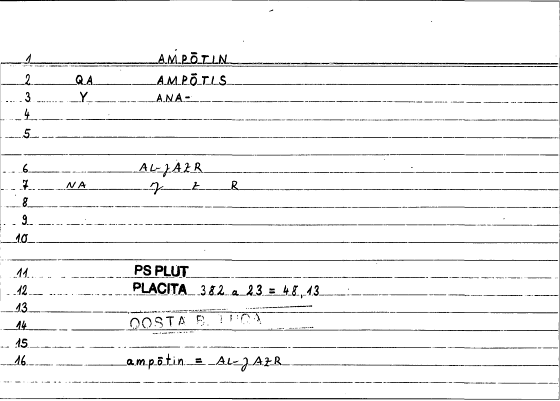 1 AMPŌTIN
2 QA AMPŌTIS
3 Y ANA-
4
5
6 AL-ǧAZR
7 NA ǧ z R
8
9
10
11 PS PLUT
12 PLACITA 382 a 23 = 48,13
13
14 QOSTA B. LUQA
15
16 ampōtin = AL-ǧAZR